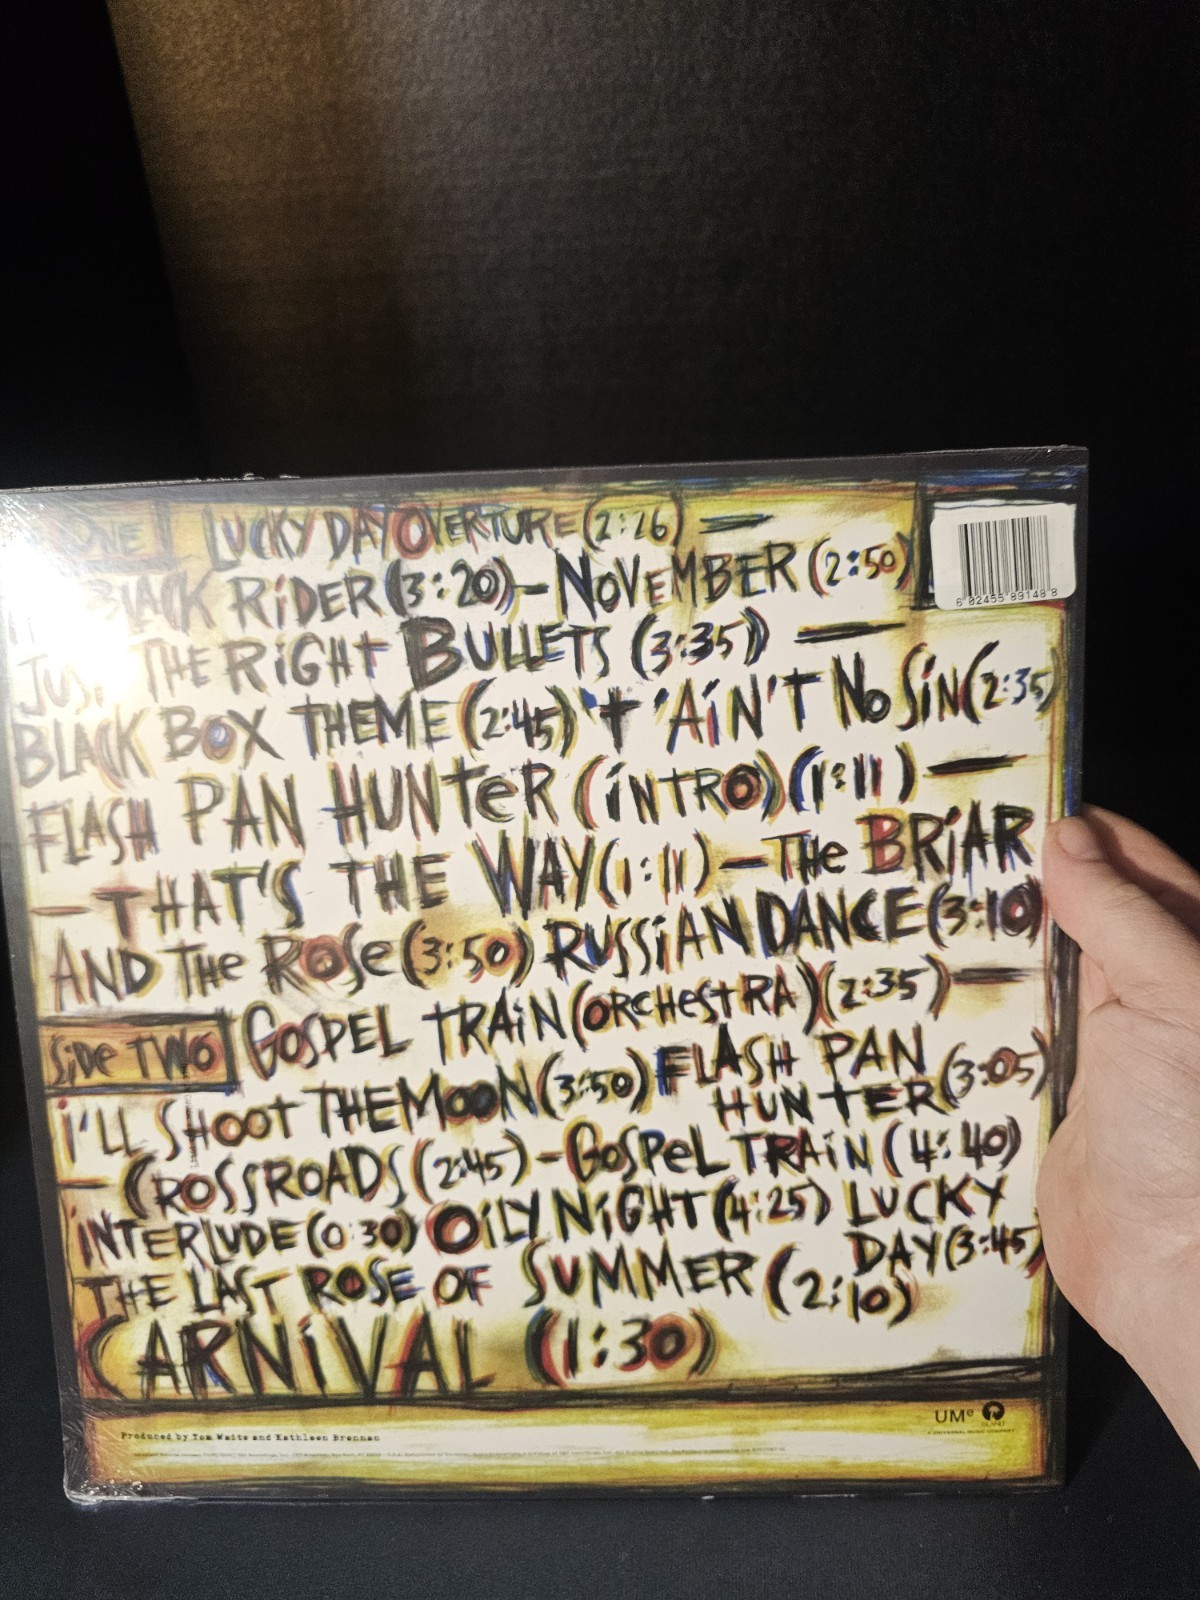 ONE LUCKY DAY OVERTURE (2:26) —
BLACK RiDER (3:20) - NOVEMBER (2:50)
JUST THE RiGHT BULLETS (3:35) —
BLACK BOX THEME (2:45) 'T 'AiN'T No SiN (2:35)
FLASH PAN HUNTeR (iNTRO) (1:11) —
— THAT'S THE WAY (1:11) — THe BRiAR
AND THe ROSe (3:50) RUSSiAN DANCE (3:10)
SiDe TWO GOSPEL TRAiN (ORCHESTRA) (2:35) —
i'LL SHOOT THE MOON (3:50) FLASH PAN
HUNTER (3:05)
— CROSSROADS (2:45) - GOSPeL TRAiN (4:40)
iNTERLUDE (0:30) OiLY NiGHT (4:25) LUCKY
DAY (3:45)
THE LAST ROSE OF SUMMER (2:10)
CARNiVAL (1:30)
6 02455 89148 8
Produced by Tom Waits and Kathleen Brennan
UMe ISLAND
A UNIVERSAL MUSIC COMPANY